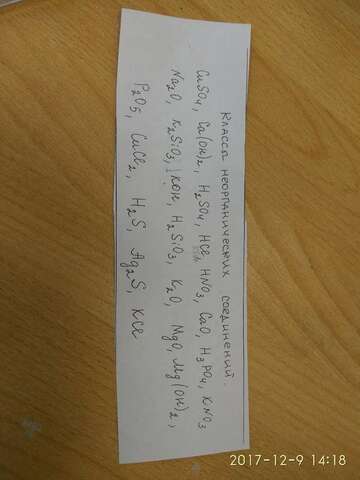 Классы неорганических соединений.
CuSO4, Ca(OH)2, H2SO4, HCl, HNO3, CaO, H3PO4, KNO3
Na2O, K2SiO3, KOH, H2SiO3, K2O, MgO, Mg(OH)2,
P2O5, CuCl2, H2S, Ag2S, KCl
2017-12-9 14:18